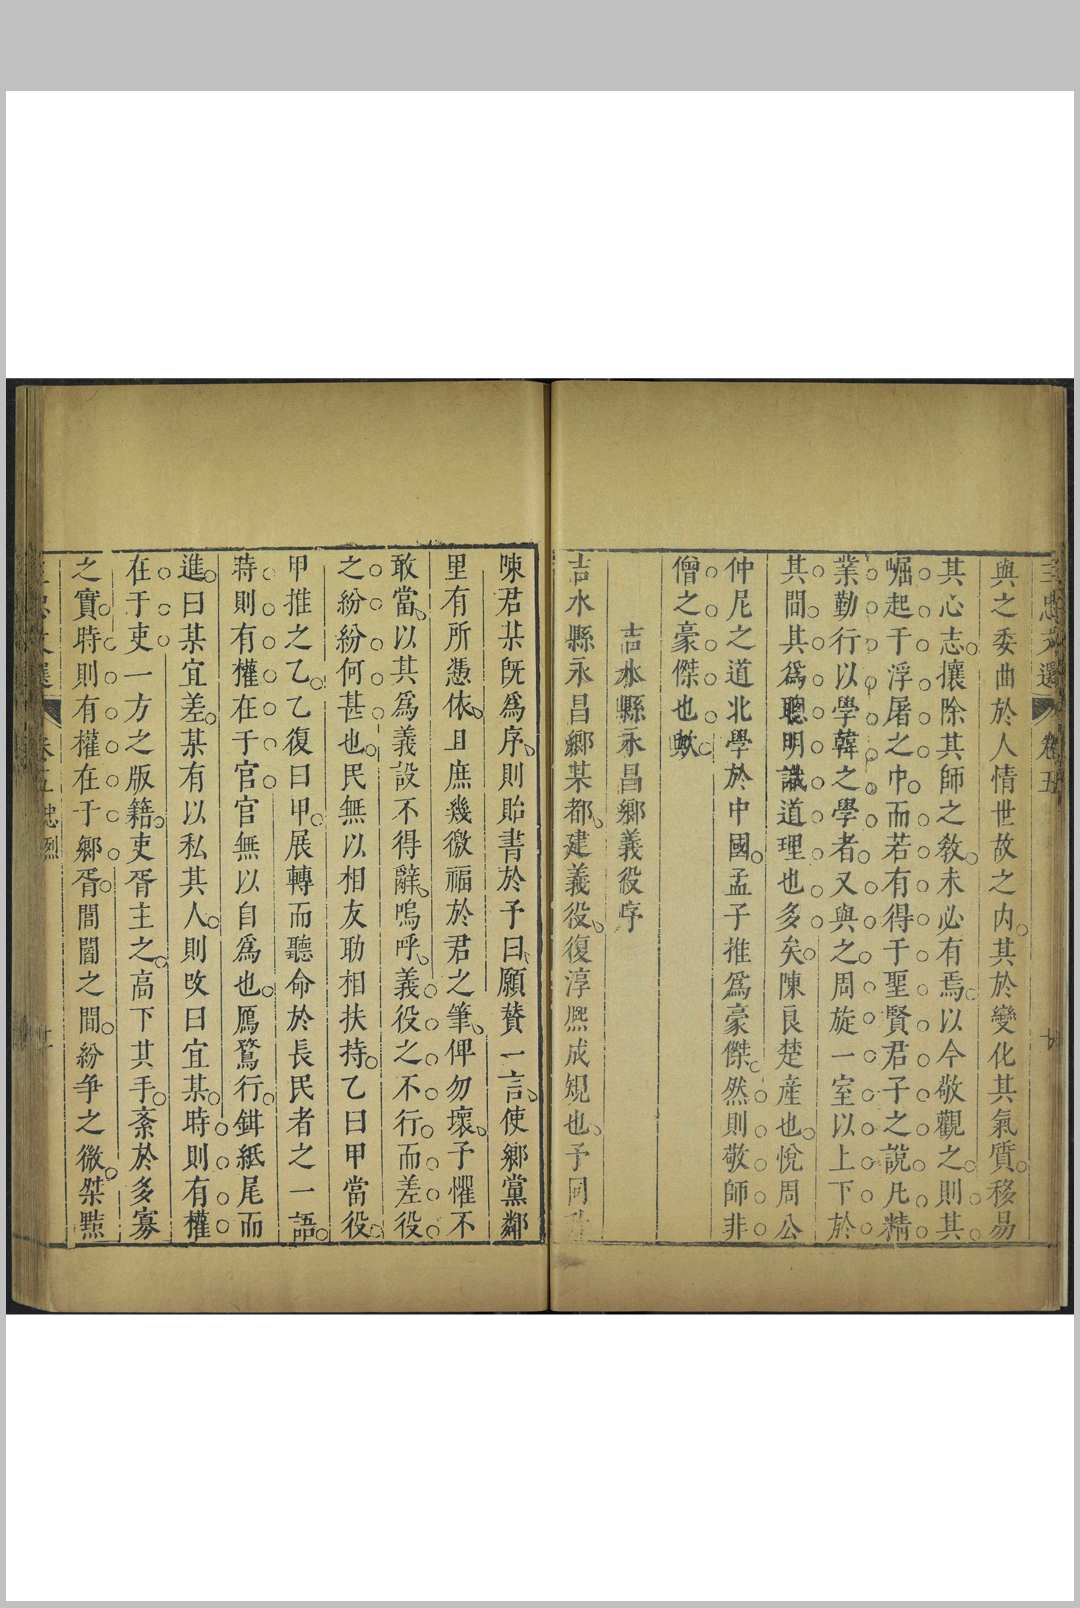 三忠文選 卷五
與之委曲於人情世故之內其於變化其氣質移易
其心志攘除其師之教未必有焉以今敬觀之則其
崛起于浮屠之中而若有得于聖賢君子之說凡精
業勤行以學韓之學者又與之周旋一室以上下於
其問其為聰明識道理也多矣陳良楚產也悅周公
仲尼之道北學於中國孟子推為豪傑然則敬師非
僧之豪傑也歟
吉水縣永昌鄉義役序
吉水縣永昌鄉某都建義役復淳熈成規也予同
陳君某既為序則貽書於予曰願賛一言使鄉黨鄰
里有所憑依且庶幾徼福於君之筆俾勿壞予懼不
敢當以其為義設不得辭嗚呼義役之不行而差役
之紛紛何甚也民無以相友助相扶持乙曰甲當役
甲推之乙乙復曰甲展轉而聽命於長民者之一語
時則有權在于官官無以自為也鴈鶩行鉗紙尾而
進曰某宜差某有以私其人則改曰宜某時則有權
在于吏一方之版籍吏胥主之高下其手紊於多寡
之實時則有權在于鄉胥閭閻之間紛爭之微桀黠
卷五忠烈